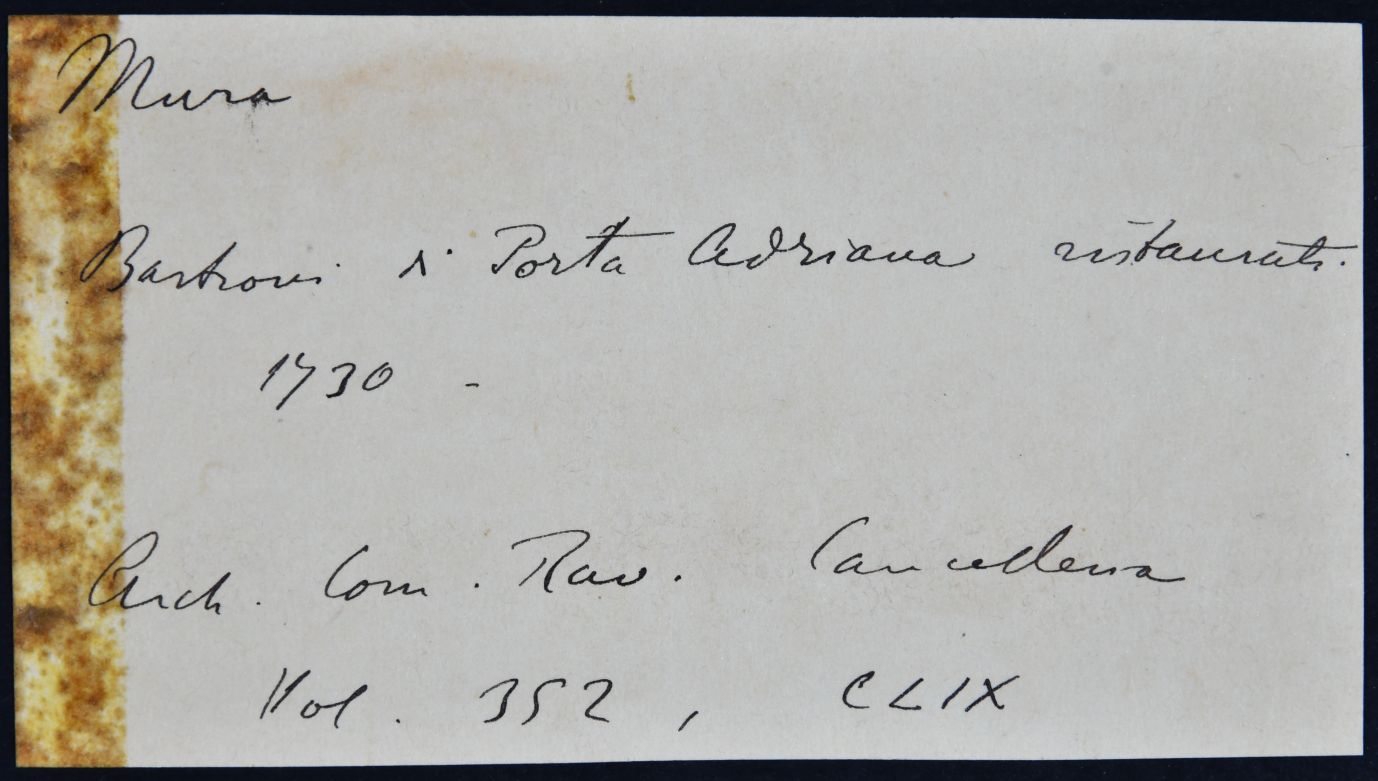 Mura
Bastioni di Porta Adriana ristaurati.
1730 -
Arch. Com. Rav. Cancelleria
Vol. 352, CLIX